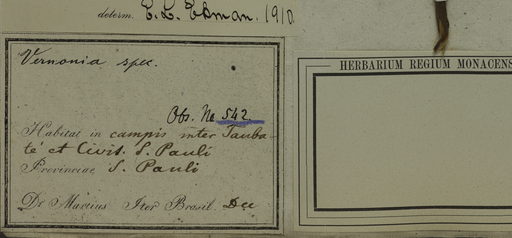 determ. E. L. Ekman. 1910
Vernonia spec.
Obs. No 542.
Habitat in campis inter Tauba-
té et Civit. S. Pauli
Provinciae S. Pauli
Dr Martius Iter Brasil. Dec
HERBARIUM REGIUM MONACENS